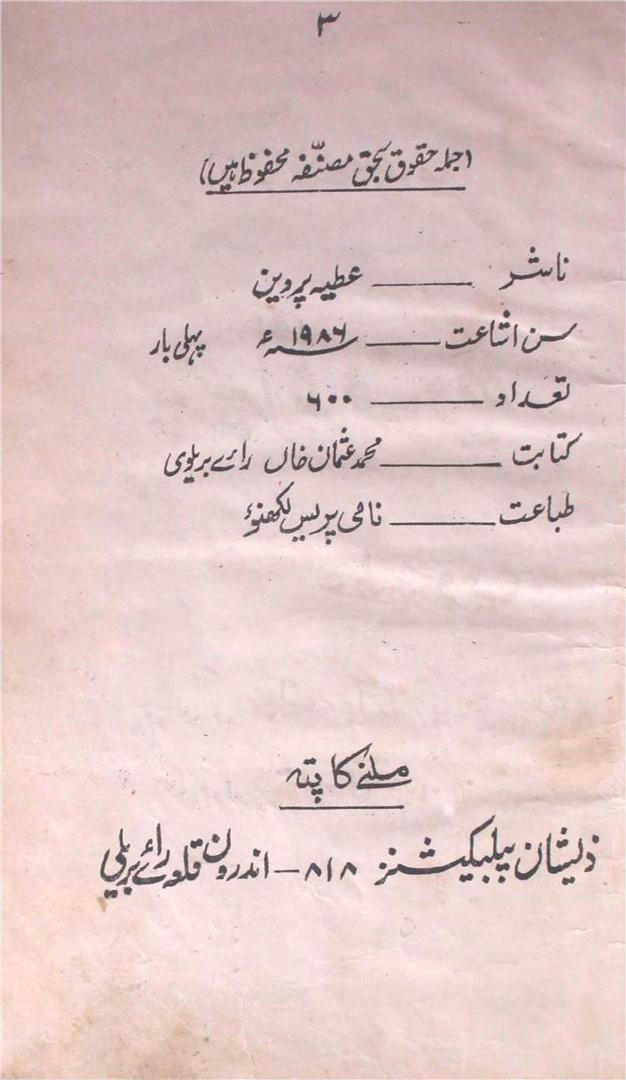 ۳
(جملہ حقوق بحق مصنّفہ محفوظ ہیں)
ناشر ——— عطیہ پروین
سن اشاعت ——— ۱۹۸۶ء پہلی بار
تعداد ——— ۶۰۰
کتابت ——— محمد عثمان خاں رائے بریلوی
طباعت ——— نامی پریس لکھنؤ
ملنے کا پتہ
ذیشان پبلیکیشنز ۸۱۸ – اندرون قلعہ رائے بریلی